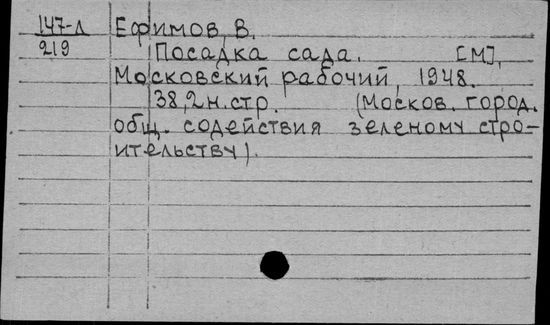 147-л Ефимов, В.
219 Посадка сада. [М],
Московский рабочий, 1948.
38,2н.стр. (Москов. город.
общ. содействия зеленому стро-
ительству).